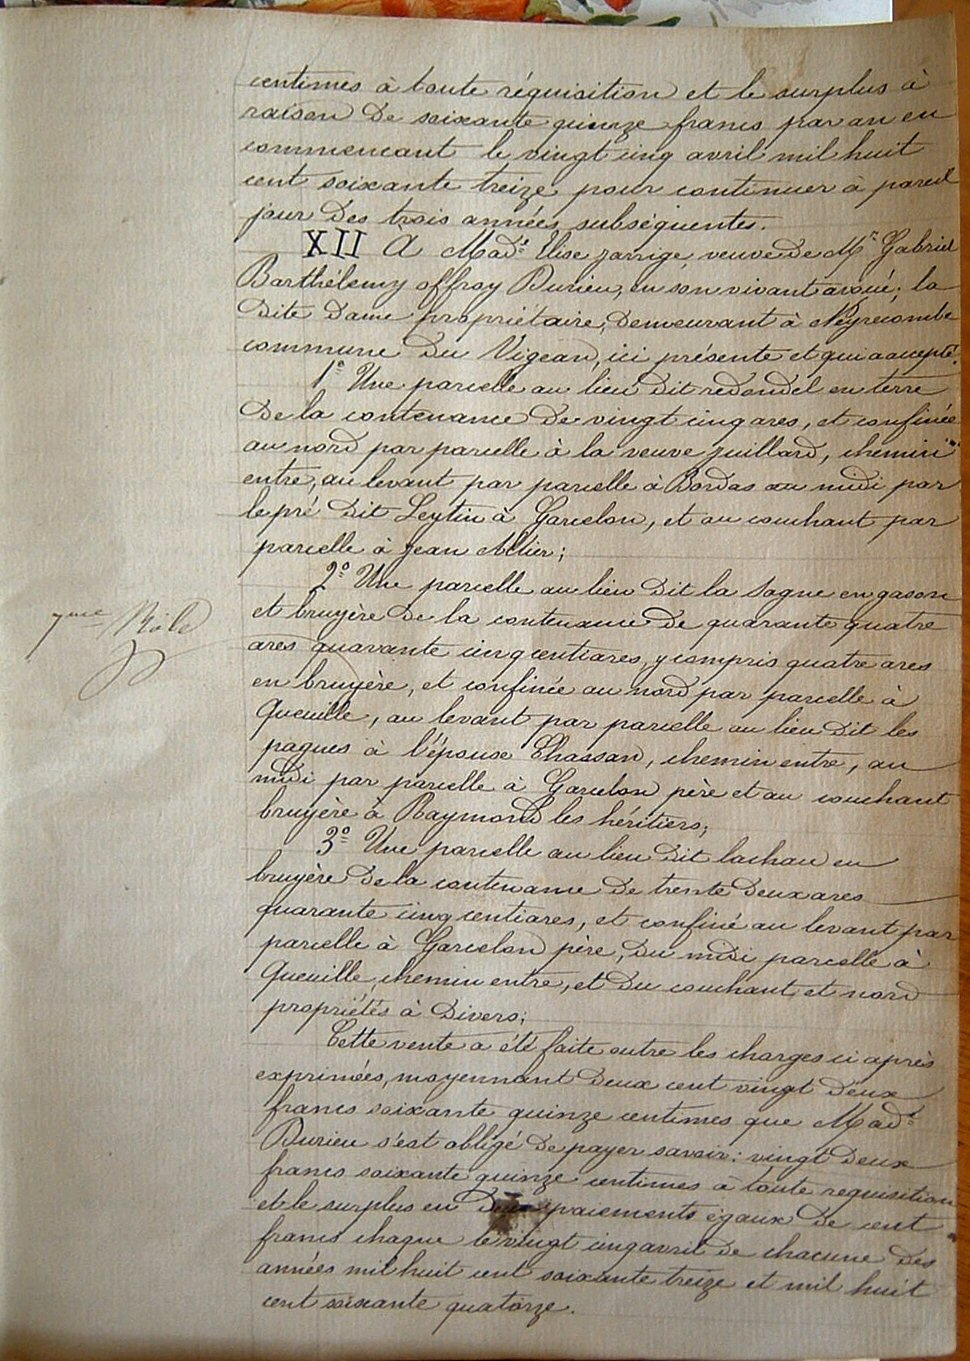 centimes à toute réquisition et le surplus à
raison de soixante quinze francs par an en
commencant le vingt cinq avril mil huit
cent soixante treize pour continuer à pareil
jour des trois années subséquentes.
XII À Mad.e Elise Jarrige, veuve de M.r Gabriel
Barthélemy offroy Durieu, en son vivant avoué; la
dite dame propriétaire, demeurant à Neyrecombe
commune du Vigean, ici présente et qui a accepté.
1.o Une parcelle au lieu dit redondel en terre
de la contenance de vingt cinq ares, et confinée
au nord par parcelle à la veuve Juillard, chemin
entre, au levant par parcelle à Bordas au midi par
le pré dit Leytin à Garcelon, et au couchant par
parcelle à Jean Allier;
2.o Une parcelle au lieu dit la Sagne en gason
et bruyère de la contenance de quarante quatre
7me Rôle
ares quarante cinq centiares, y compris quatre ares
en bruyère, et confinée au nord par parcelle à
Queuille, au levant par parcelle au lieu dit les
pagues à l'épouse Chassan, chemin entre, au
midi par parcelle à Garcelon père et au couchant
bruyère à Raymond les héritiers;
3.o Une parcelle au lieu dit lachau en
bruyère de la contenance de trente deux ares
quarante cinq centiares, et confiné au levant par
parcelle à Garcelon père, du midi parcelle à
Queuille, chemin entre, et du couchant et nord
propriétés à divers;
Cette vente a été faite outre les charges ci après
exprimées, moyennant deux cent vingt deux
francs soixante quinze centimes que Mad.e
Durieu s'est obligé de payer savoir: vingt deux
francs soixante quinze centimes à toute requisition
et le surplus en deux paiements égaux de cent
francs chaque le vingt cinq avril de chacune des
années mil huit cent soixante treize et mil huit
cent soixante quatorze.